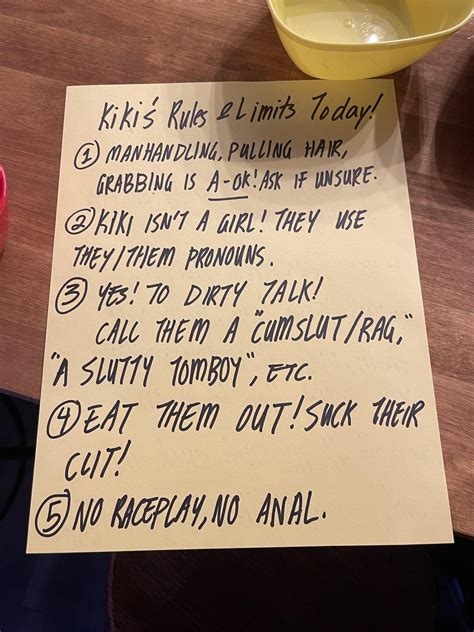 Kiki's Rules & Limits Today!
① MANHANDLING, PULLING HAIR,
GRABBING IS A-OK! ASK IF UNSURE.
② KIKI ISN'T A GIRL! THEY USE
THEY/THEM PRONOUNS.
③ YES! TO DIRTY TALK!
CALL THEM A "CUMSLUT/RAG,"
"A SLUTTY TOMBOY", ETC.
④ EAT THEM OUT! SUCK THEIR
CLIT!
⑤ NO RACEPLAY, NO ANAL.